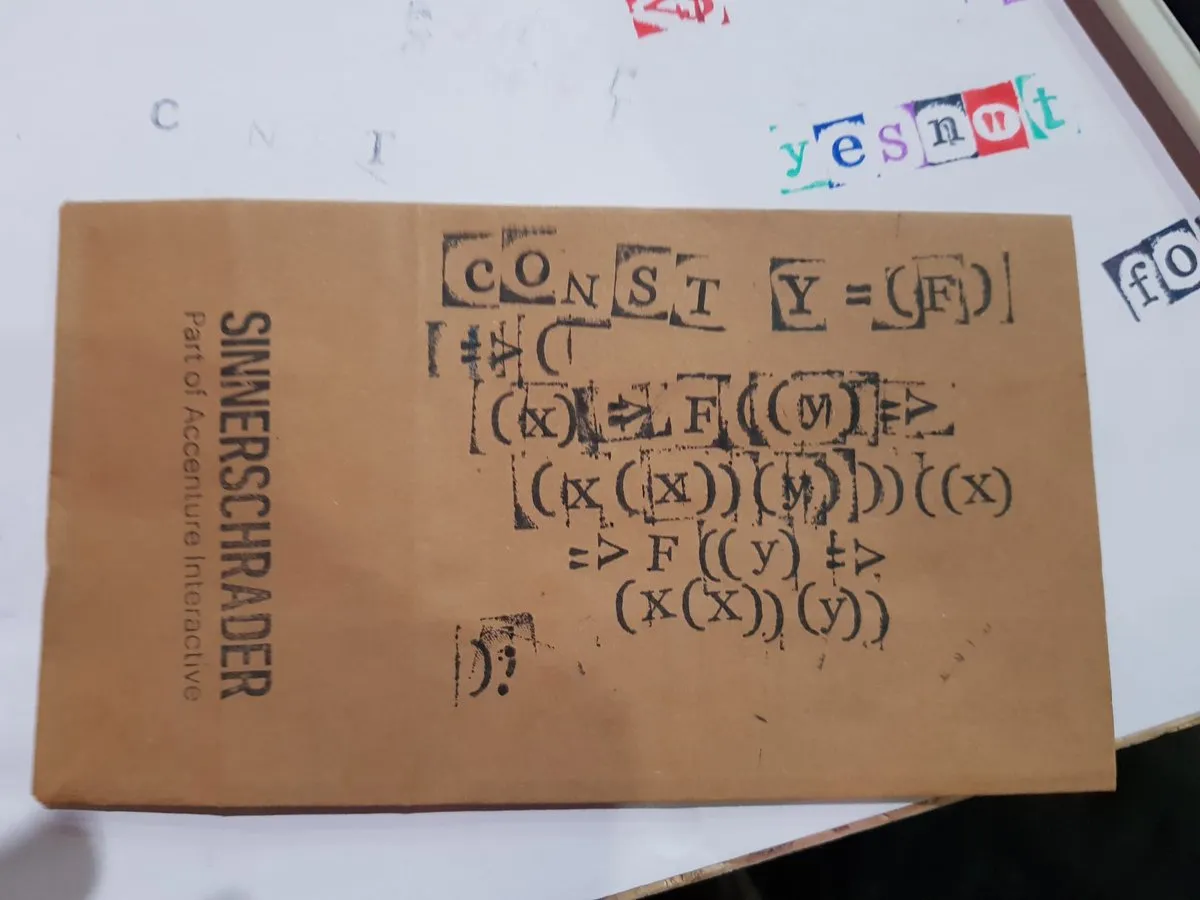 C N T
yesnwt
fo
CONST Y =(F)
=> (
(x) => F((y) =>
((x(x))(y)))((x)
=> F((y) =>
(x(x))(y))
);
SINNERSCHRADER
Part of Accenture Interactive